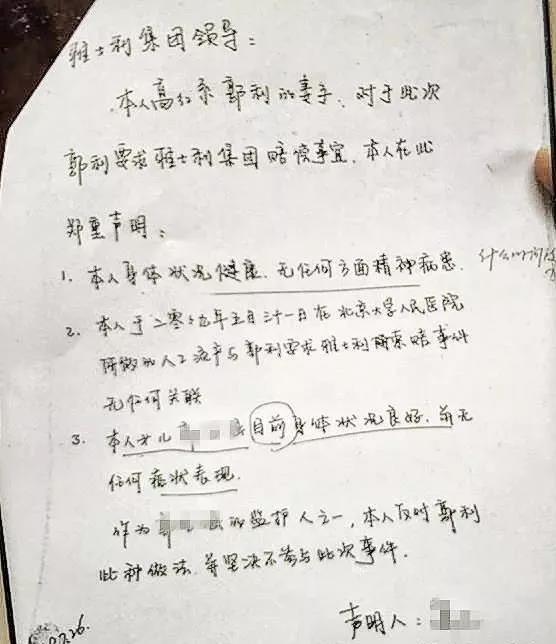 雅士利集团领导：
本人高红系郭利的妻子、对于此次
郭利要求雅士利集团赔偿事宜、本人在此
郑重声明：
1. 本人身体状况健康、无任何方面精神病患. 什么时间
2. 本人于二零零九年五月三十一日在北京大学人民医院
所做的人工流产与郭利要求雅士利所索赔事件
无任何关联
3. 本人女儿 目前身体状况良好、并无
任何症状表现.
作为 的监护人之一，本人反对郭利
此种做法、并坚决不参与此次事件.
声明人：